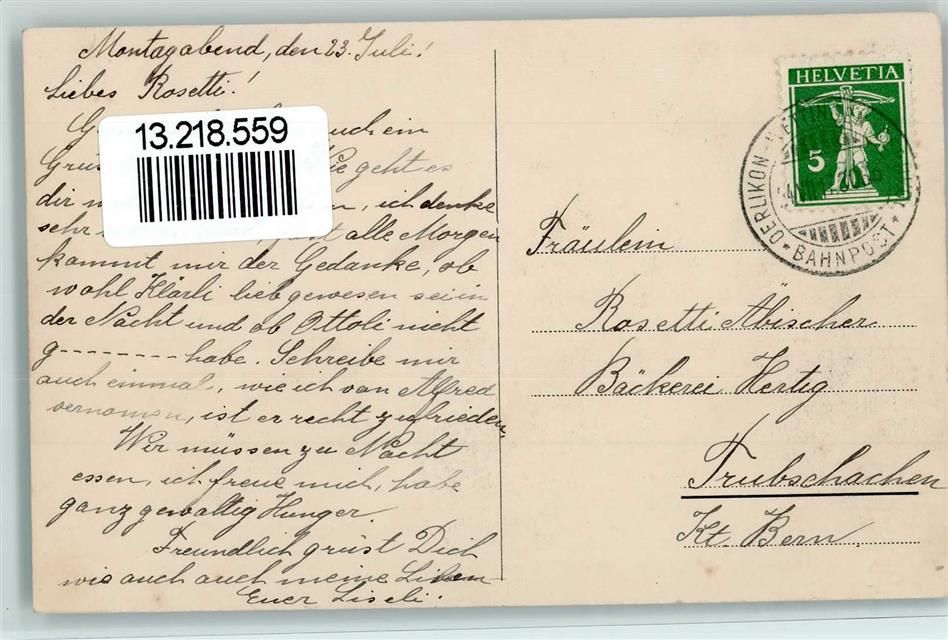 Montagabend, den 23. Juli!
Liebes Rosetti!
auch ein
geht es
dir ich denke
sehr alle Morgen
kommt mir der Gedanke, ob
wohl Klärli lieb gewesen sei in
der Nacht und ob Ottoli nicht
g-------- habe. Schreibe mir
auch einmal, wie ich von Alfred
vernomen, ist er recht zufrieden,
Wir müssen zu Nacht
essen, ich freue mich, habe
ganz gewaltig Hunger.
Freundlich grüst Dich
wie auch auch meine Lieben
Euer Liseli.
13.218.559
HELVETIA
5
OERLIKON
BAHNPOST
Fräulein
Rosetti Äbischer
Bäckerei Hertig
Trubschachen
Kt. Bern.